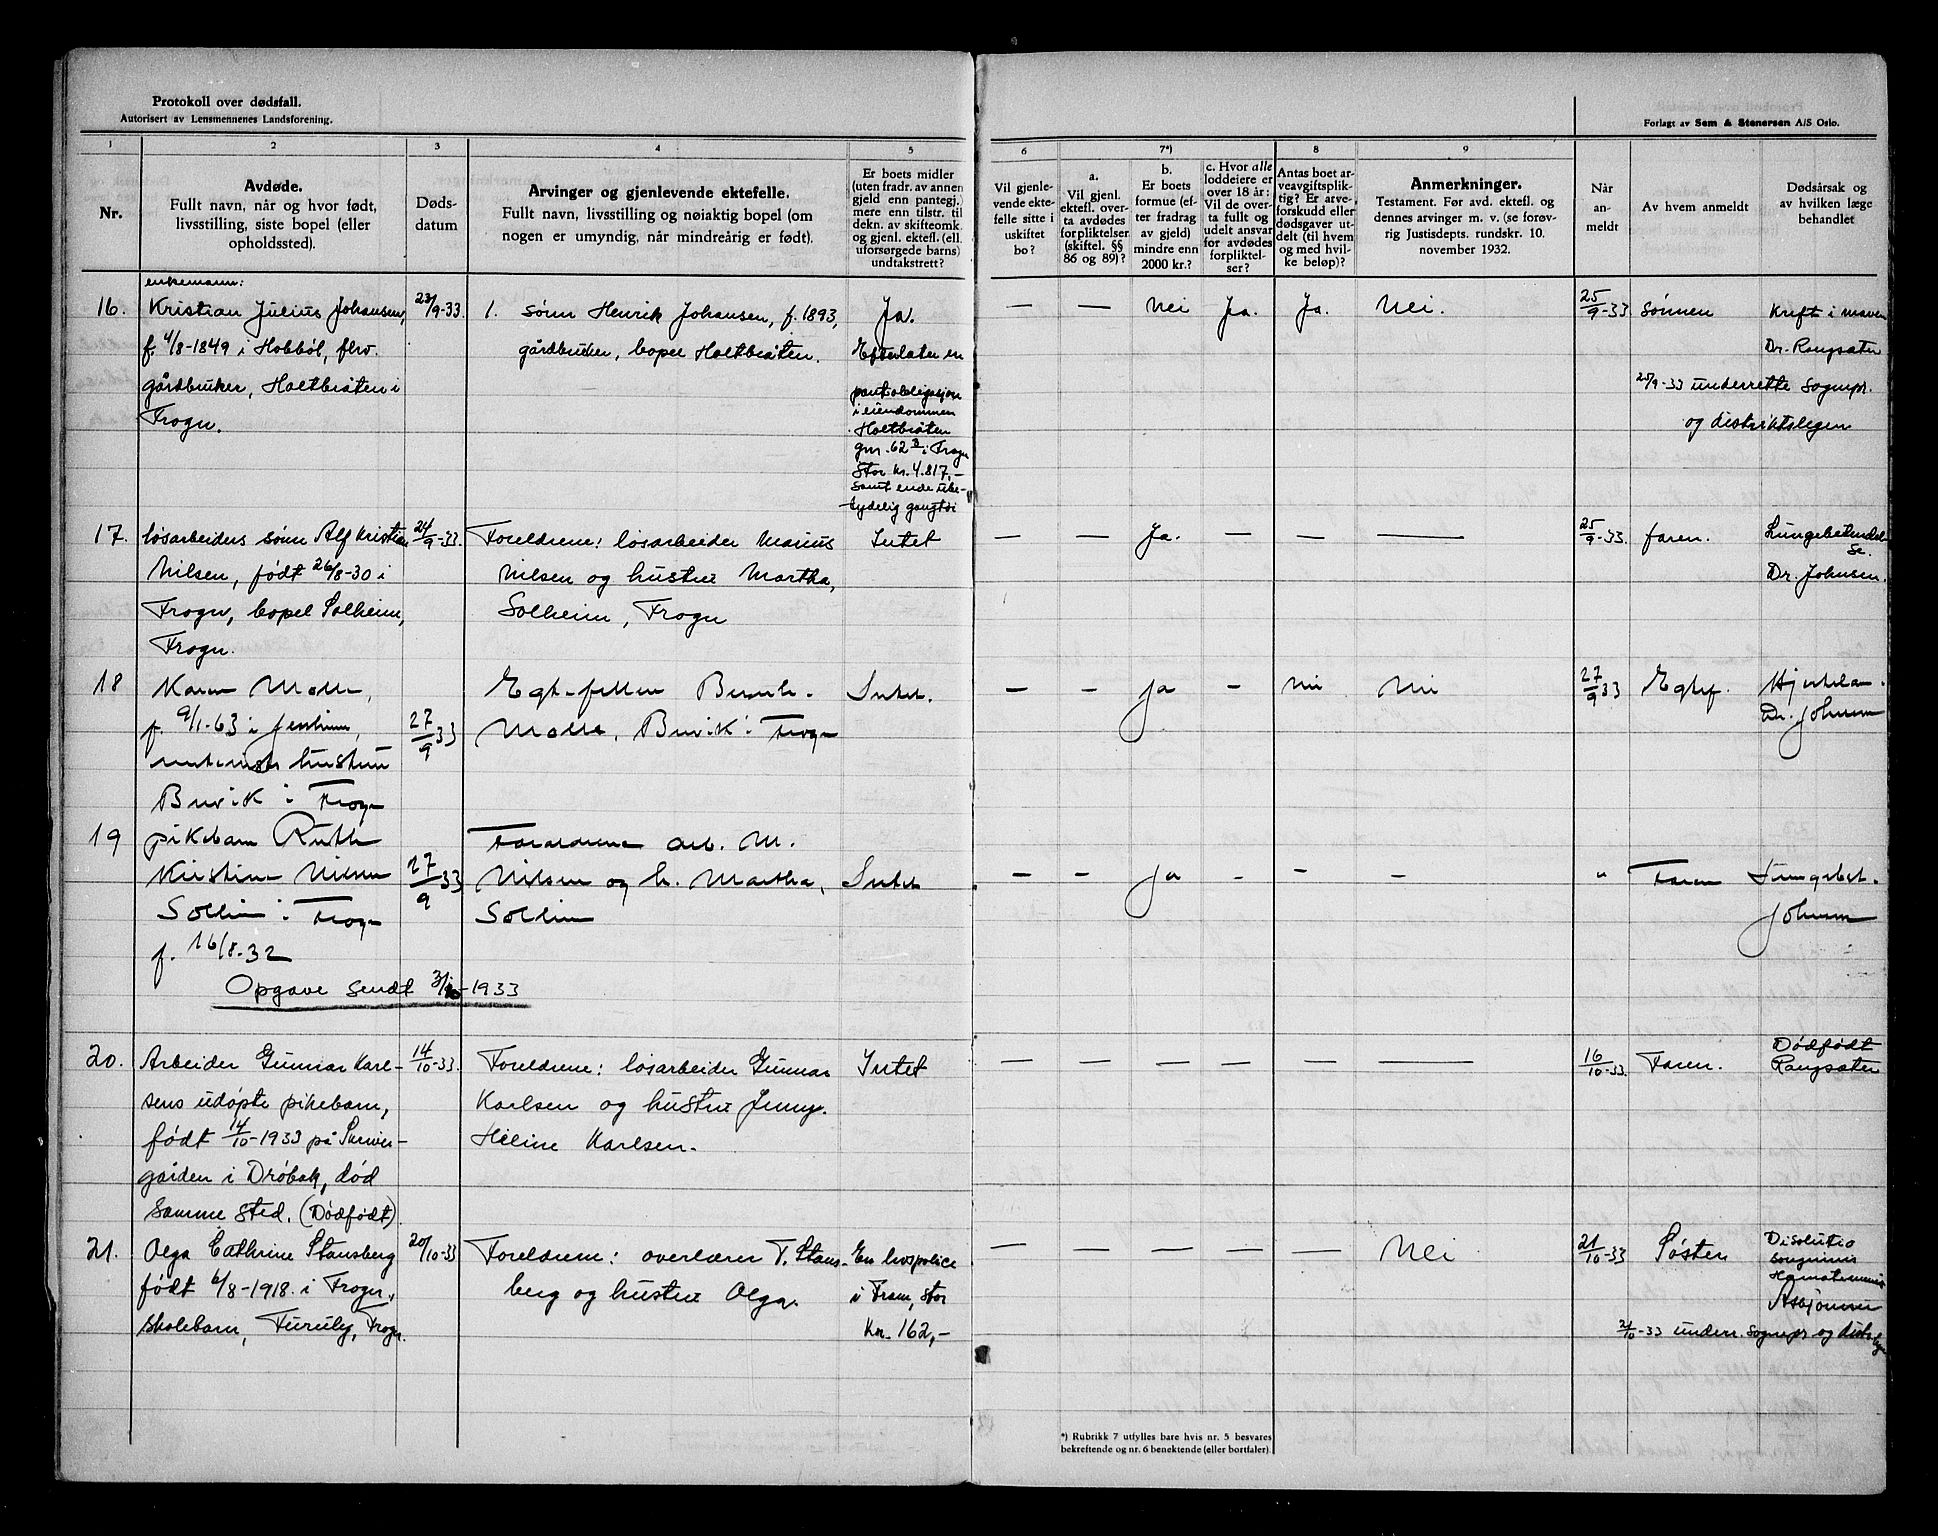 Protokoll over dødsfall.
Autorisert av Lensmennenes Landsforening.
Forlagt av Sem & Stenersen A/S Oslo.
1
2
3
4
5
6
7*)
8
9
Nr.
Avdøde.
Fullt navn, når og hvor født,
livsstilling, siste bopel (eller
opholdssted).
Døds-
datum
Arvinger og gjenlevende ektefelle.
Fullt navn, livsstilling og nøiaktig bopel (om
nogen er umyndig, når mindreårig er født).
Er boets midler
(uten fradr. av annen
gjeld enn pantegj.)
mere enn tilstr. til
dekn. av skifteomk.
og gjenl. ektef. (ell.
uforsørgede barns)
undtakstrett?
Vil gjenle-
vende ekte-
felle sitte i
uskiftet
bo?
a.
Vil gjenl.
ektefl. over-
ta avdødes
forpliktelser
(skiftel. §§
86 og 89)?
b.
Er boets
formue (ef-
ter fradrag
av gjeld)
mindre enn
2000 kr.?
c. Hvor alle
loddeiere er
over 18 år:
Vil de over-
ta fullt og
udelt ansvar
for avdødes
forpliktel-
ser?
Antas boet ar-
veavgiftsplik-
tig? Er arve-
forskudd eller
dødsgaver ut-
delt (til hvem
og med hvil-
ke beløp)?
Anmerkninger.
Testament. Før avd. ektefl. og
dennes arvinger m. v. (se forøv-
rig Justisdepts. rundskr. 10.
november 1932.
Når
an-
meldt
Av hvem anmeldt
Dødsårsak og
av hvilken læge
behandlet
16.
enkemann:
Kristian Julius Johansen,
f. 4/8-1849 i Hobböl, fhv.
gårdbruker, Holtbråten i
Frogn.
23/9-33.
1. sönn Henrik Johansen, f. 1893,
gårdbruker, bopel Holtbråten.
Ja.
Efterlater en
pantobligasjon
i eiendommen
Holtbråten
gnr. 62 i Frogn
Stor kr. 4.817,-
samt ende ube-
tydelig
— — Nei Ja. Ja. Nei.
25/9-33 Sönnen
Kreft i maven
Dr. Rangsæter
25/9-33 underrettet sognepr.
og distriktslegen
17.
lösarbeiders sönn Alf Kristian
Nilsen, födt 26/8-30 i
Frogn, bopel Solheim,
Frogn.
24/9-33.
Foreldrene: lösarbeider Marius
Nilsen og hustru Martha,
Solheim, Frogn
Intet
— — Ja. — — —
25/9-33. faren.
Lungebetendel-
se.
Dr. Johnsen.
18
Karen Molle,
f. 9/1-63 i
hustru
Buvik i Frogn
27/9 33
Egtefellen
Molle, Buvik i Frogn
Intet.
— — ja — Nei Nei
27/9 33 Egtef.
Dr. Johnsen
19
pikebarn Ruth
Kirstine Nilsen
Solheim i Frogn
f. 16/8.32
27/9 33
Foreldrene arb. M.
Nilsen og h. Martha,
Solheim
Intet
— — ja — — —
" Faren
Lungebet.
Johnsen
Opgave sendt 3/10-1933
20.
Arbeider Gunnar Karl-
sens udöpte pikebarn,
födt 14/10-1933 på Skriver-
gården i Dröbak, död
samme sted. (Dödfödt)
14/10-33.
Foreldrene: lösarbeider Gunnar
Karlsen og hustru Jenny
Heline Karlsen.
Intet
— — — — — —
16/10-33. Faren.
Dödfödt
Rangsæter
21.
Olga Cathrine Stansberg
födt 6/8-1918. i Frogn,
skolebarn, Furuly, Frogn.
20/10-33
Foreldrene: overlærer T. Stans-
berg og hustru Olga.
En livspolice
i Fram, stor
Kr. 162,-
— — — — — Nei
21/10-33 Söster
Disolutio
sanguinis
Asbjörnsen
21/10-33 underr. sognepr og distr.lege
*) Rubrikk 7 utfylles bare hvis nr. 5 besvares
bekreftende og nr. 6 benektende (eller bortfaler).